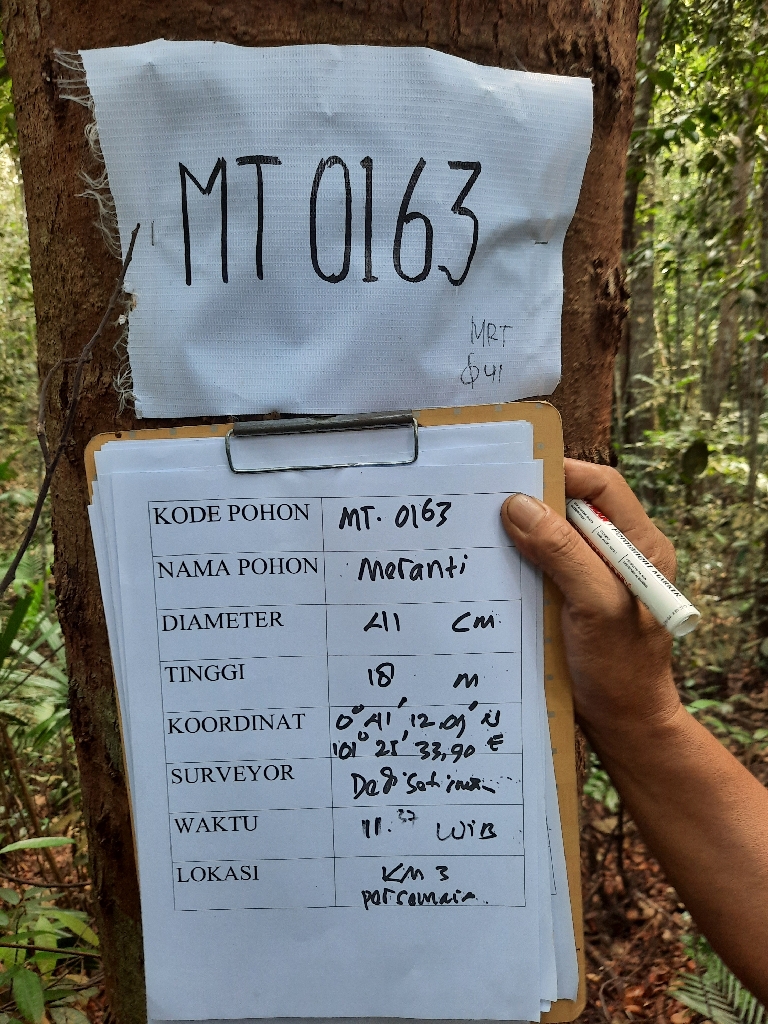 MT 0163
MRT
ϕ 41
KODE POHON MT. 0163
NAMA POHON Meranti
DIAMETER 41 cm
TINGGI 18 m
KOORDINAT 0° 41' 12.09" N
101° 21' 33,90 E
SURVEYOR
WAKTU 11.37 WIB
LOKASI KM 3
PERMANENT MARKER